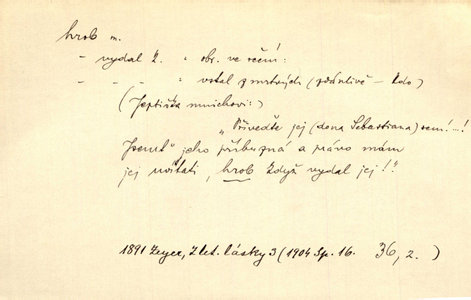 hrob m.
- vydal Z. : obr. ve rčení:
- - - : vstal z mrtvých (zdánlivě - kdo)
(Jeptiška mnichovi:)
„Přiveďte jej (dona Sebastiana) sem!...!
Jsemt' jeho příbuzná a právo mám
jej uvítati, hrob když vydal jej!"
1891 Zeyer, Z let. lásky 3 (1904 Sp. 16. 36, 2.)